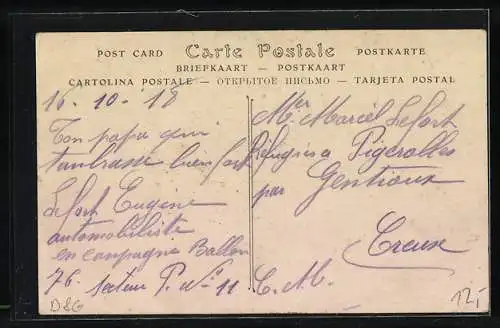 POST CARD Carte Postale POSTKARTE
BRIEFKAART — POSTKAART
CARTOLINA POSTALE — ОТКРЫТОЕ ПИСЬМО — TARJETA POSTAL
16 - 10 - 18
Ton papa qui
tambrasse bien fort
Lefort Eugene
automobiliste
en compagne Ballon
76. secteur P. N° 11
Mr. Marcel Lefort
Réfugier a Pigerolles
par Gentioux
Creuse
C. M.
D&G
12,-